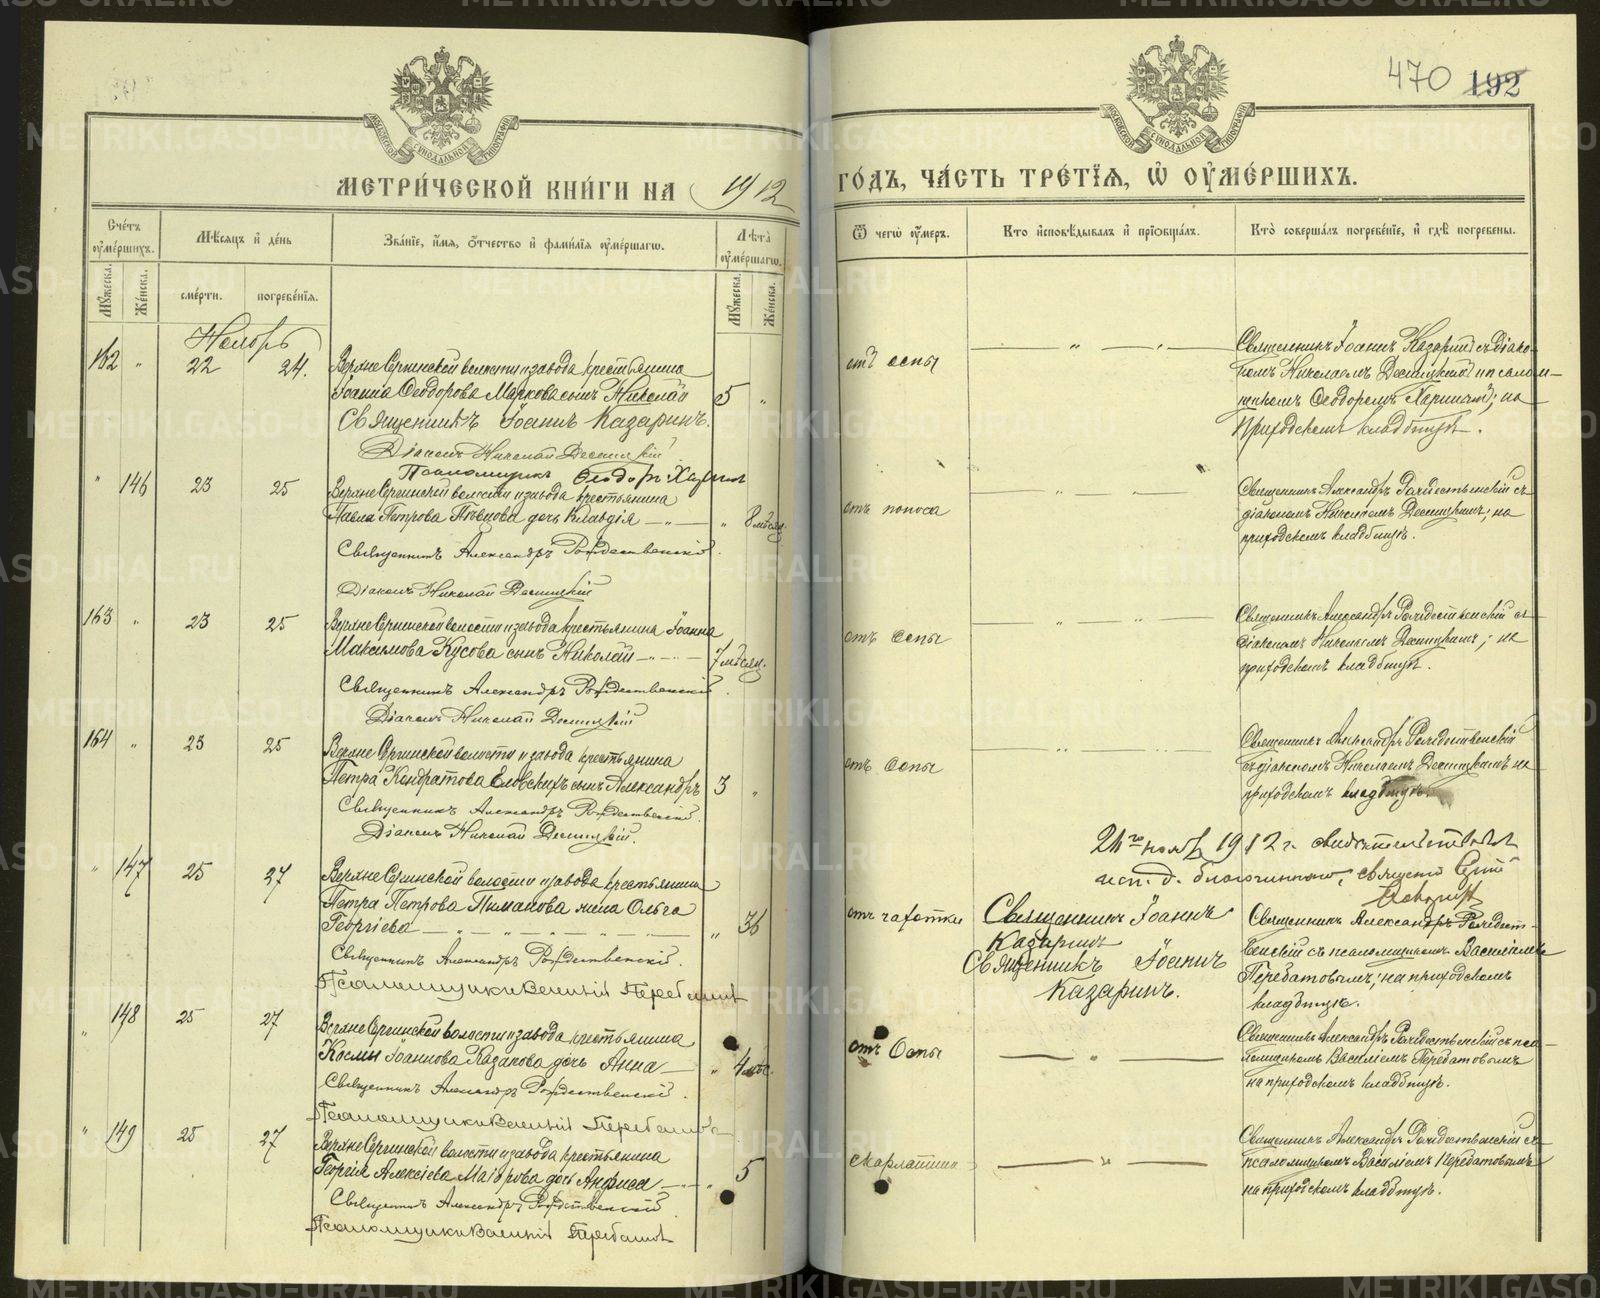 470 192
МЕТРИ́ЧЕСКОЙ КНИ́ГИ НА 1912 ГО́ДЪ, ЧА́СТЬ ТРЕ́ТІѦ, Ѡ ОУМЕ́РШИХЪ.
Сче́тъ оуме́ршихъ.
Мѣсяцъ и де́нь
Зва́ніе, и́мя, о́тчество и фами́лія оуме́ршагω.
Лѣта̀ оуме́ршагω.
Ѿ чегѡ̀ оу́меръ.
Кто̀ исповѣ́дывалъ и пріобща́лъ.
Кто̀ соверша́лъ погребе́ніе, и гдѣ̀ погребены.
Му́жеска. Же́нска.
сме́рти. погребе́нія.
Му́жеска. Же́нска.
Ноябрь
162 " 22 24.
Верхне Сергинской волости и завода крестьянина
Іоанна Ѳеодорова Маркова сынъ Николай 5 "
Священникъ Іоаннъ Казаринъ.
Діаконъ Николай Десницкій
Псаломщикъ Ѳеодоръ
отъ оспы
Священникъ Іоаннъ Казаринъ съ діако-
номъ Николаемъ Десницкимъ и псалом-
щикомъ Ѳеодоромъ на
Приходскомъ кладбищѣ.
" 146 23 25
Верхне Сергинской волости и завода крестьянина
Павла Петрова Пѣвцова дочь Клавдія " 8 мѣсяц.
Священникъ Александръ Рождественскій.
Діаконъ Николай Десницкій
отъ поноса
Священникъ Александръ Рождественскій съ
діакономъ Николаемъ Десницкимъ; на
приходскомъ кладбищѣ.
163 " 23 25
Верхне Сергинской волости и завода крестьянина Іоанна
Максимова Кусова сынъ Николай 7 мѣсяц.
Священникъ Александръ Рождественскій.
Діаконъ Николай Десницкій
отъ Оспы
Священникъ Александръ Рождественскій съ
діакономъ Николаемъ Десницкимъ; на
приходскомъ кладбищѣ.
164 " 23 25
Верхне Сергинской волости и завода крестьянина
Петра Кондратова Еловскихъ сынъ Александръ 3 "
Священникъ Александръ Рождественскій.
Діаконъ Николай Десницкій.
отъ Оспы
Священникъ Александръ Рождественскій
съ діакономъ Николаемъ Десницкимъ на
приходскомъ кладбищѣ.
24го ноября 1912 г. свидѣтельствовалъ
исп. д. благочиннаго, священ.
" 147 25 27
Верхне Сергинской волости и завода крестьянина
Петра Петрова Пиманова жена Ольга
Георгіева " 36
Священникъ Александръ Рождественскій.
Псаломщикъ Василій Перебатовъ
отъ чахотки
Священникъ Іоаннъ
Казаринъ
Священникъ Іоаннъ
Казаринъ.
Священникъ Александръ Рождест-
венскій съ псаломщикомъ Василіемъ
Перебатовымъ; на приходскомъ
кладбищѣ.
" 148 25 27
Верхне Сергинской волости и завода крестьянина
Космы Іоаннова Казакова дочь Анна " 4 мѣс.
Священникъ Александръ Рождественскій.
Псаломщикъ Василій Перебатовъ
отъ Оспы
Священникъ Александръ Рождественскій съ пса-
ломщикомъ Василіемъ Перебатовымъ
на приходскомъ кладбищѣ.
" 149 25 27
Верхне Сергинской волости и завода крестьянина
Георгія Алексіева Маіорова дочь Анфиса " 5
Священникъ Александръ Рождественскій.
Псаломщикъ Василій Перебатовъ
скарлатина
Священникъ Александръ Рождественскій съ
псаломщикомъ Василіемъ Перебатовымъ
на приходскомъ кладбищѣ.
METRIKI.GASO-URAL.RU